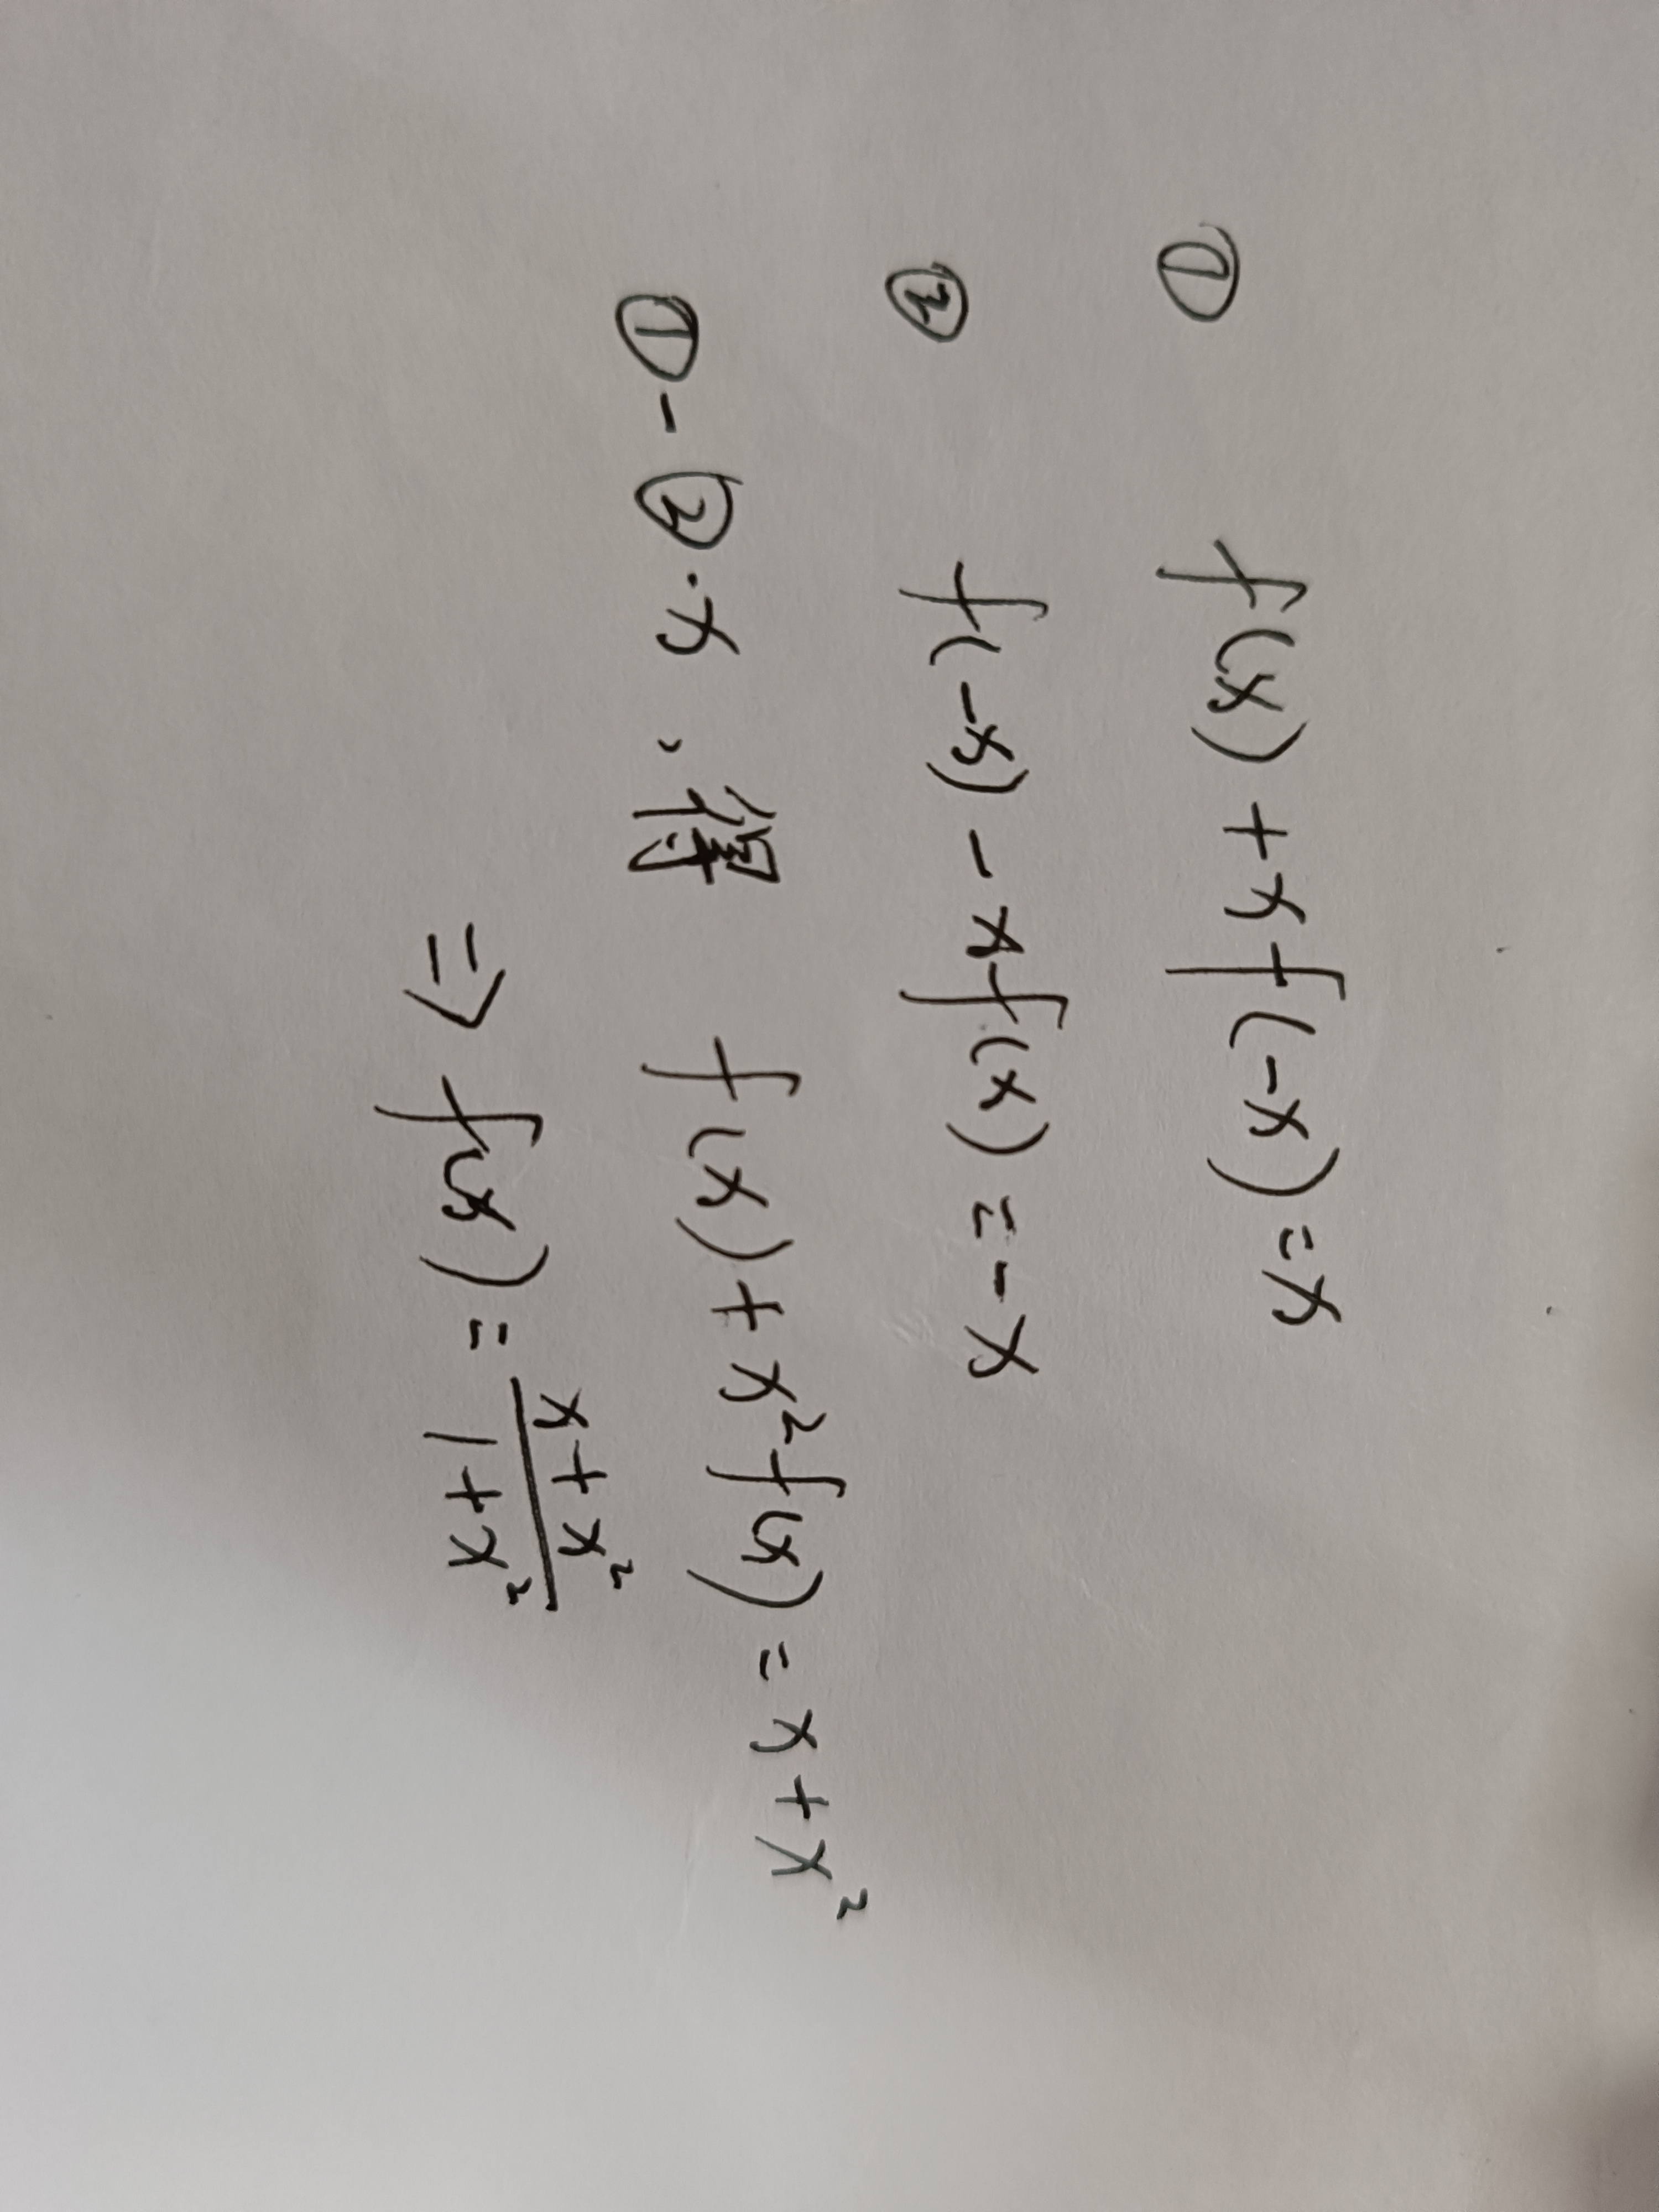 ① f(x)+xf(-x)=x
② f(-x)-xf(x)=-x
①-②·x、得 f(x)+x²f(x)=x+x²
⇒ f(x)=\frac{x+x²}{1+x²}